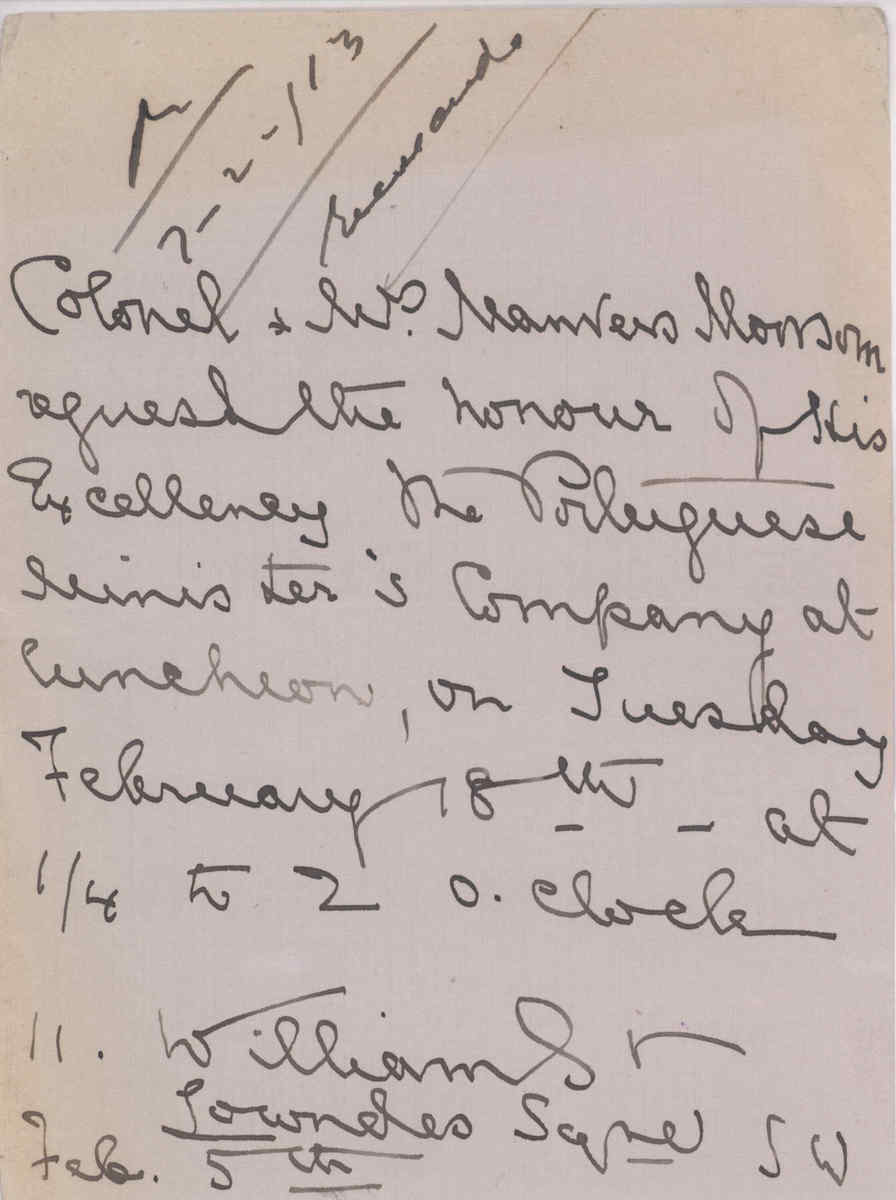 r
7-2-913
recusando
Colonel & Mrs. Manvers
request the honour of His
Excellency the Portuguese
Minister's Company at
luncheon, on Tuesday
February 18th - at
1/4 to 2 o.clock
11. William St
Lowndes Sqre SW
Feb. 5th